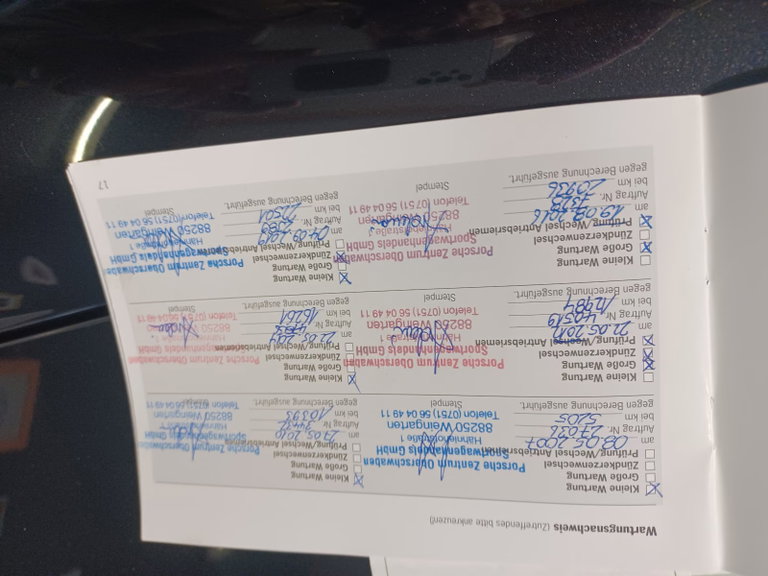 Wartungsnachweis (Zutreffendes bitte ankreuzen)
Kleine Wartung
Große Wartung
Zündkerzenwechsel
Prüfung/Wechsel Antriebsriemen
am
Auftrag Nr.
bei km 5205
gegen Berechnung ausgeführt.
Porsche Zentrum Oberschwaben
Sportwagenhandels GmbH
Hähnlehofstraße 1
88250 Weingarten
Telefon (0751) 56 04 49 11
Stempel
Kleine Wartung
Große Wartung
Zündkerzenwechsel
Prüfung/Wechsel Antriebsriemen
am 27.05.2010
Auftrag Nr.
bei km 10393
gegen Berechnung ausgeführt.
Porsche Zentrum Oberschwaben
Sportwagenhandels GmbH
88250 Weingarten
Telefon (0751) 56 04 49 11
Kleine Wartung
Große Wartung
Zündkerzenwechsel
Prüfung/Wechsel Antriebsriemen
am
Auftrag Nr.
bei km
gegen Berechnung ausgeführt.
Porsche Zentrum Oberschwaben
Sportwagenhandels GmbH
88250 Weingarten
Telefon (0751) 56 04 49 11
Stempel
Kleine Wartung
Große Wartung
Zündkerzenwechsel
Prüfung/Wechsel Antriebsriemen
am
Auftrag Nr.
bei km 16201
gegen Berechnung ausgeführt.
Porsche Zentrum Oberschwaben
Sportwagenhandels GmbH
88250 Weingarten
Telefon (0751) 56 04 49 11
Stempel
Kleine Wartung
Große Wartung
Zündkerzenwechsel
Prüfung/Wechsel Antriebsriemen
am 19.08.2016
Auftrag Nr.
bei km 20936
gegen Berechnung ausgeführt.
Porsche Zentrum Oberschwaben
Sportwagenhandels GmbH
88250 Weingarten
Telefon (0751) 56 04 49 11
Stempel
Kleine Wartung
Große Wartung
Zündkerzenwechsel
Prüfung/Wechsel Antriebsriemen
am 04.09.2019
Auftrag Nr.
bei km 22501
gegen Berechnung ausgeführt.
Porsche Zentrum Oberschwaben
Sportwagenhandels GmbH
88250 Weingarten
Telefon (0751) 56 04 49 11
Stempel
17